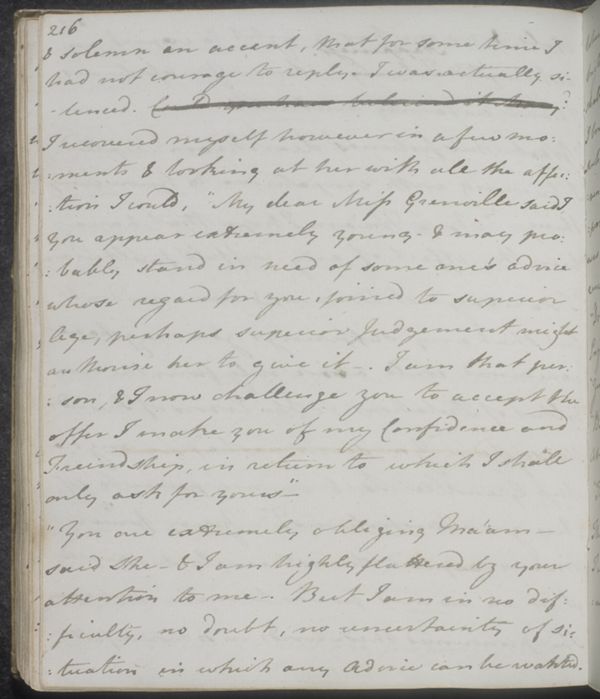 216
& solemn an accent, that for some time I
had not courage to reply. I was actually si:
:lenced.
I recovered myself however in a few mo:
:ments & looking at her with all the affec:
:tion I could, "My dear Miss Grenville said I
you appear extremely young - & may pro:
:bably stand in need of some one's advice
whose regard for you, joined to superior
Age, perhaps superior Judgement might
authorise her to give it -. I am that per:
:son, & I now challenge you to accept the
offer I make you of my Confidence and
Freindship, in return to which I shall
only ask for yours"-
"You are extremely obliging Ma'am -
said She - & I am highly flattered by your
attention to me -. But I am in no dif:
:ficulty, no doubt, no uncertainty of si:
:tuation in which any Advice can be wanted.